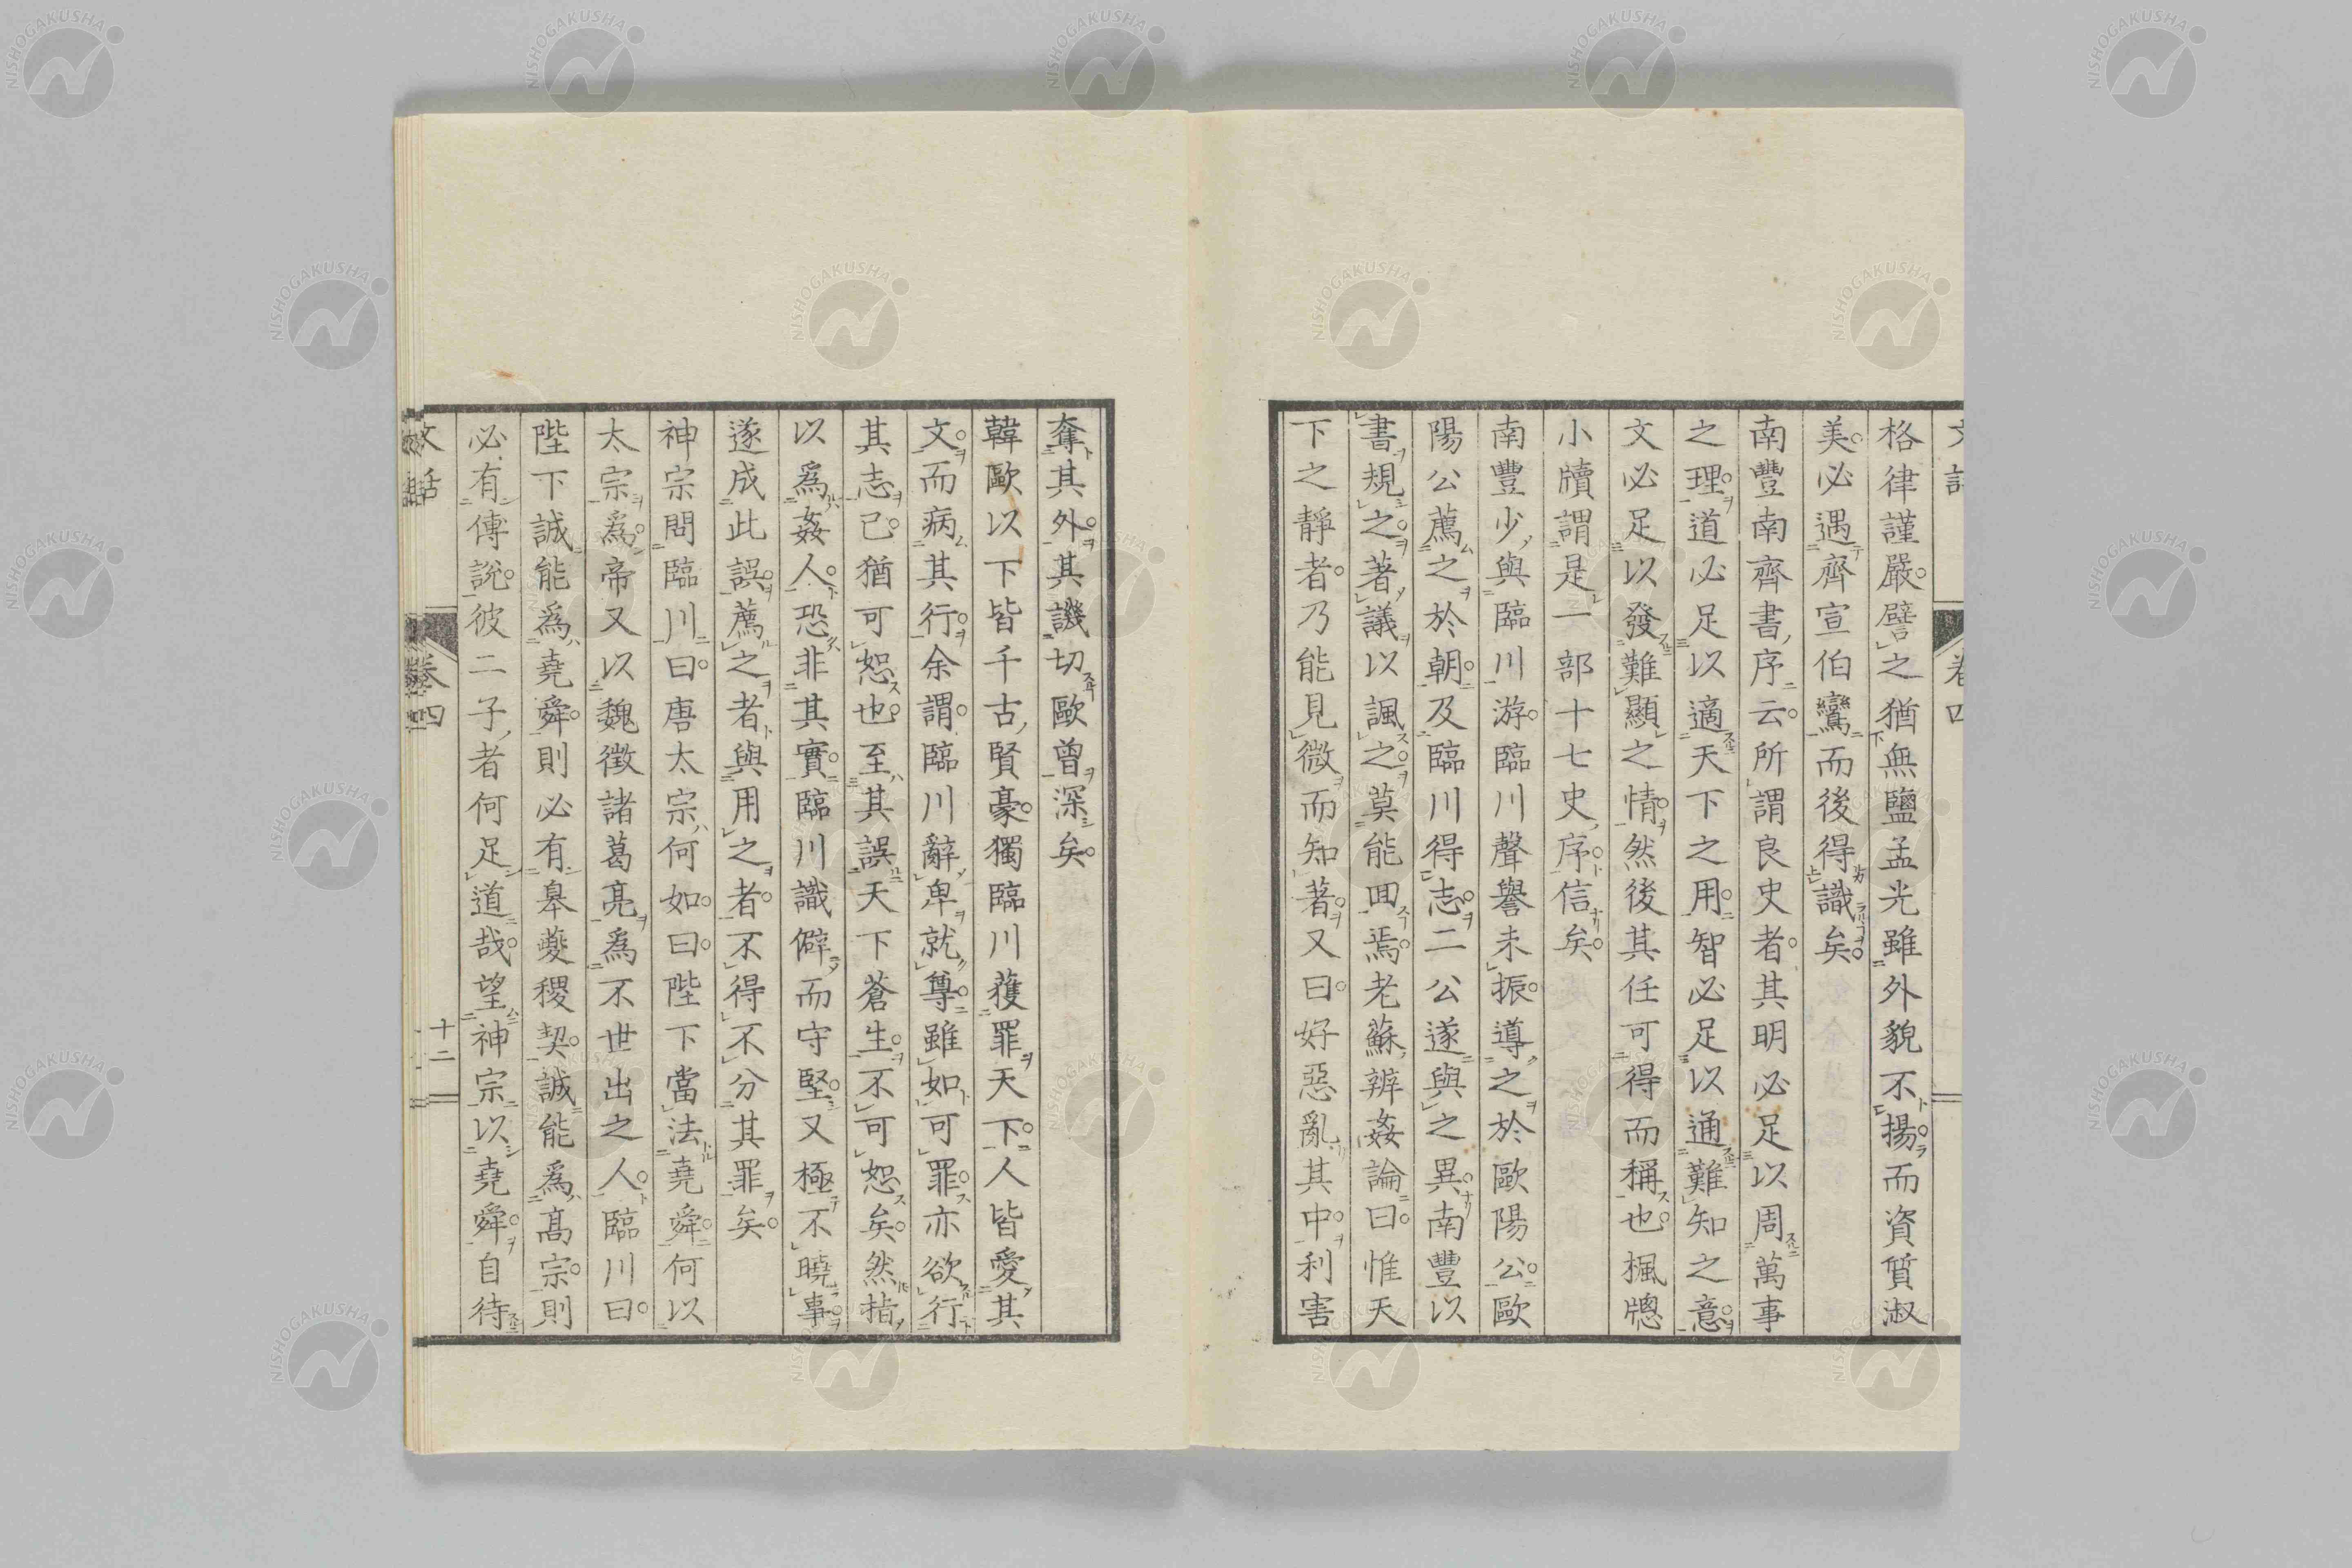 格律謹嚴。譬之猶無鹽孟光雖外貌不揚。而資質淑
美。必遇齊宣伯鸞而後得識矣。
南豐南齊書序云。所謂良史者。其明必足以周萬事
之理。道必足以適天下之用。智必足以通難知之意。
文必足以發難顯之情。然後其任可得而稱也。楓牕
小牘謂是一部十七史序。信矣。
南豐少與臨川游。臨川聲譽未振。導之於歐陽公。歐
陽公薦之於朝。及臨川得志。二公遂與之異。南豐以
書規之。著議以諷之。莫能回焉。老蘇辨姦論曰。惟天
下之靜者。乃能見微而知著。又曰。好惡亂其中。利害
奪其外。其譏切歐曾深矣。
韓歐以下皆千古賢豪。獨臨川獲罪天下。人皆愛其
文。而病其行。余謂。臨川辭卑就尊。雖如可罪。亦欲行
其志。已猶可恕也。至其誤天下蒼生。不可恕矣。然指
以爲姦人。恐非其實。臨川識僻而守堅。又極不曉事。
遂成此誤。薦之者與用之者。不得不分其罪矣。
神宗問臨川曰。唐太宗何如。曰。陛下當法堯舜。何以
太宗爲。帝又以魏徵諸葛亮爲不世出之人。臨川曰。
陛下誠能爲堯舜。則必有皋夔稷契。誠能爲高宗。則
必有傅說。彼二子者何足道哉。望神宗以堯舜。自待
文話 卷四 十二